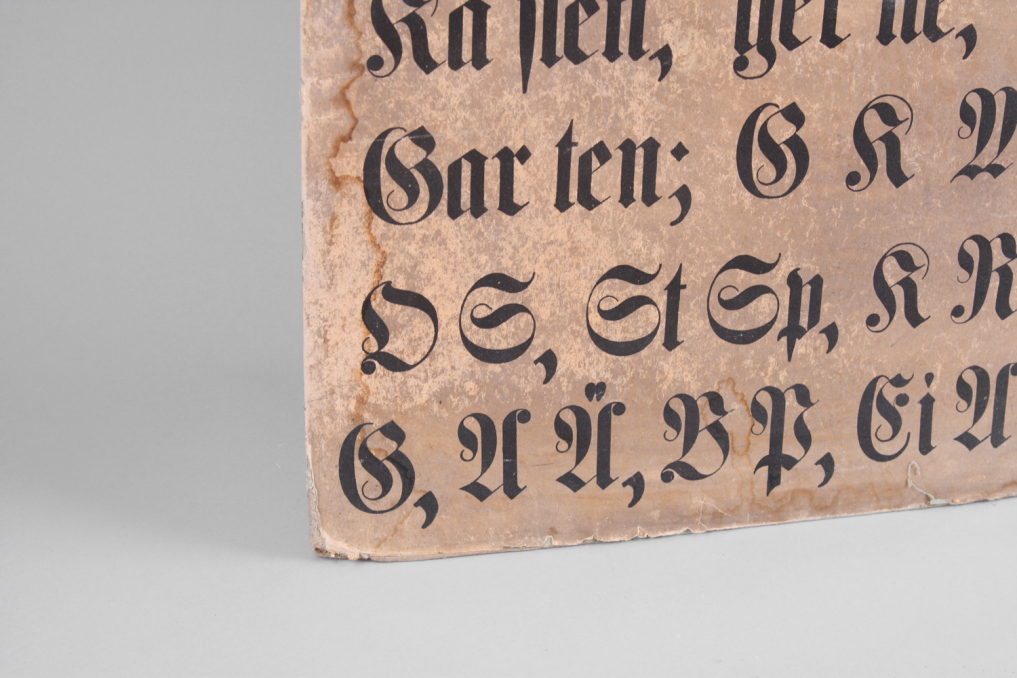 Ka ſten, ger ne,
Gar ten; G K W
O S, St Sp, K R
G, A Ä, B P, Ei A